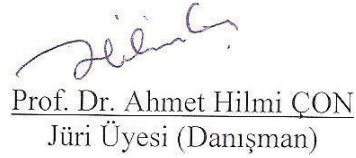 Prof. Dr. Ahmet Hilmi ÇON
Jüri Üyesi (Danışman)